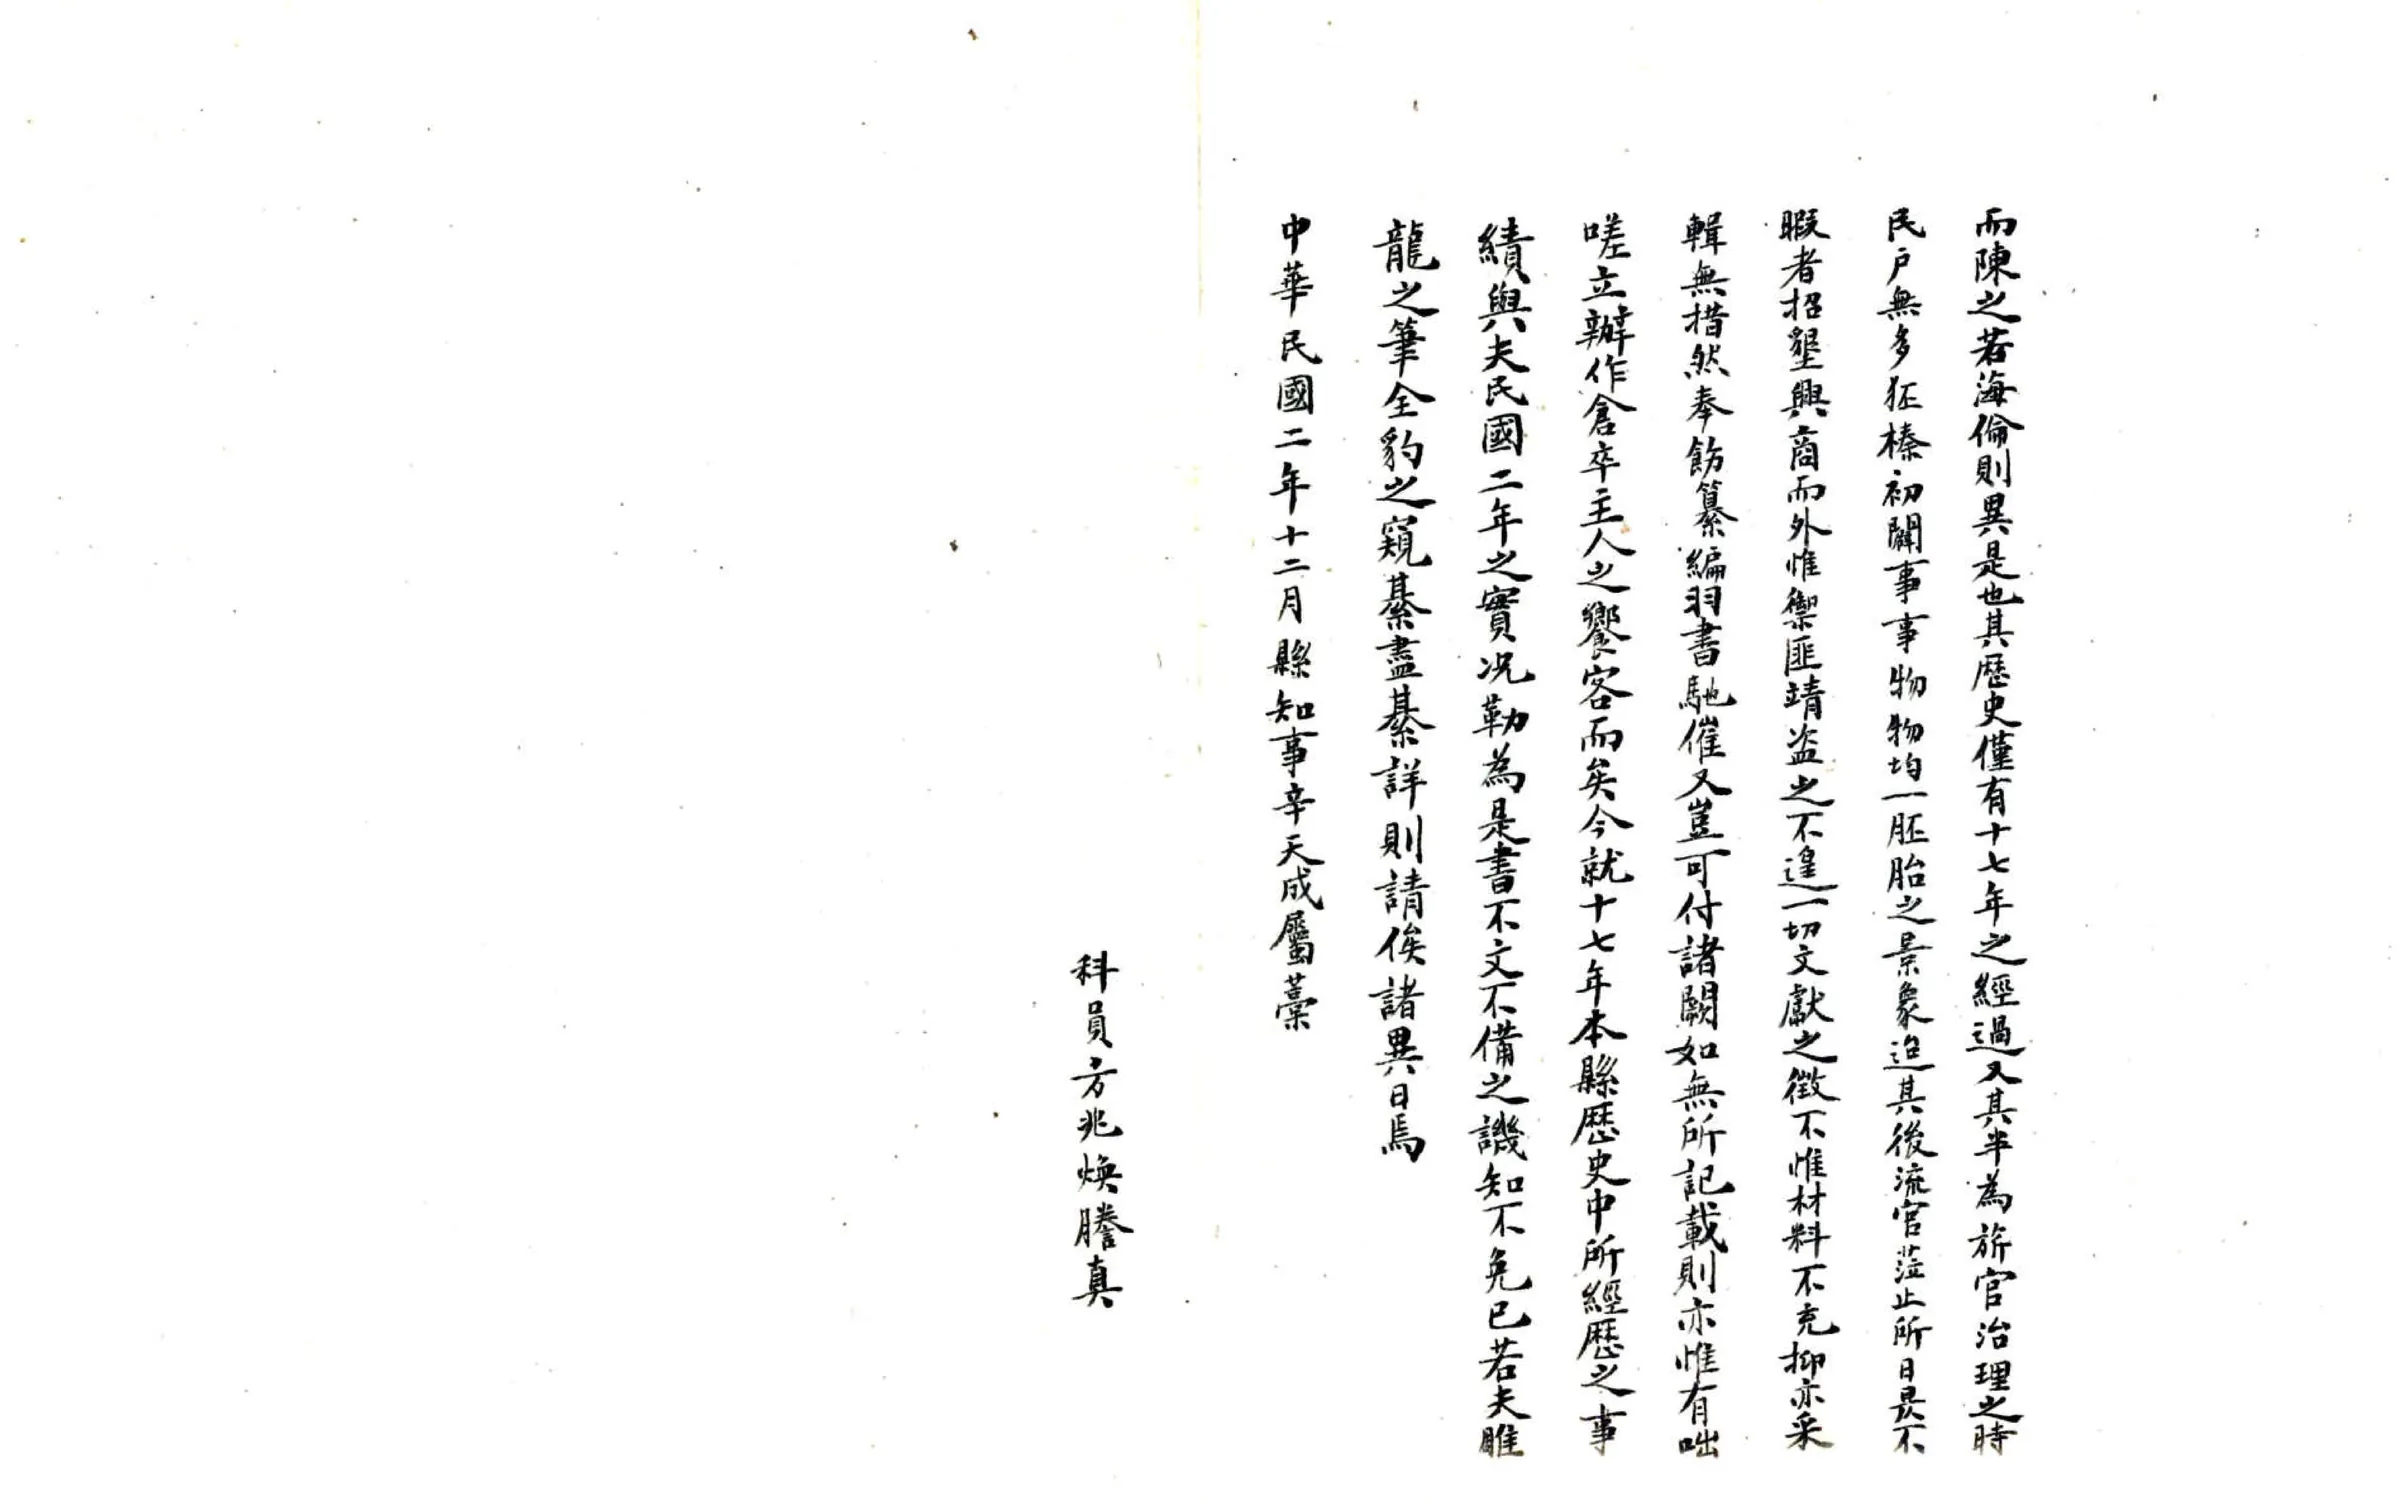 而陳之若海倫則異是也其歷史僅有十七年之經過又其半為旂官治理之時
民戶無多狉榛初闢事事物物均一胚胎之景象迨其後流官蒞止所日昃不
暇者招墾興商而外惟禦匪靖盗之不遑一切文獻之徵不惟材料不充抑亦采
輯無措然奉飭纂編羽書馳催又豈可付諸闕如無所記載則亦惟有咄
嗟立辦作倉卒主人之饗客而矣今就十七年本縣歷史中所經歷之事
績與夫民國二年之實况勒為是書不文不備之譏知不免已若夫雕
龍之筆全豹之窺綦盡綦詳則請俟諸異日焉
中華民國二年十二月縣知事辛天成屬藁
科員方兆煥謄真